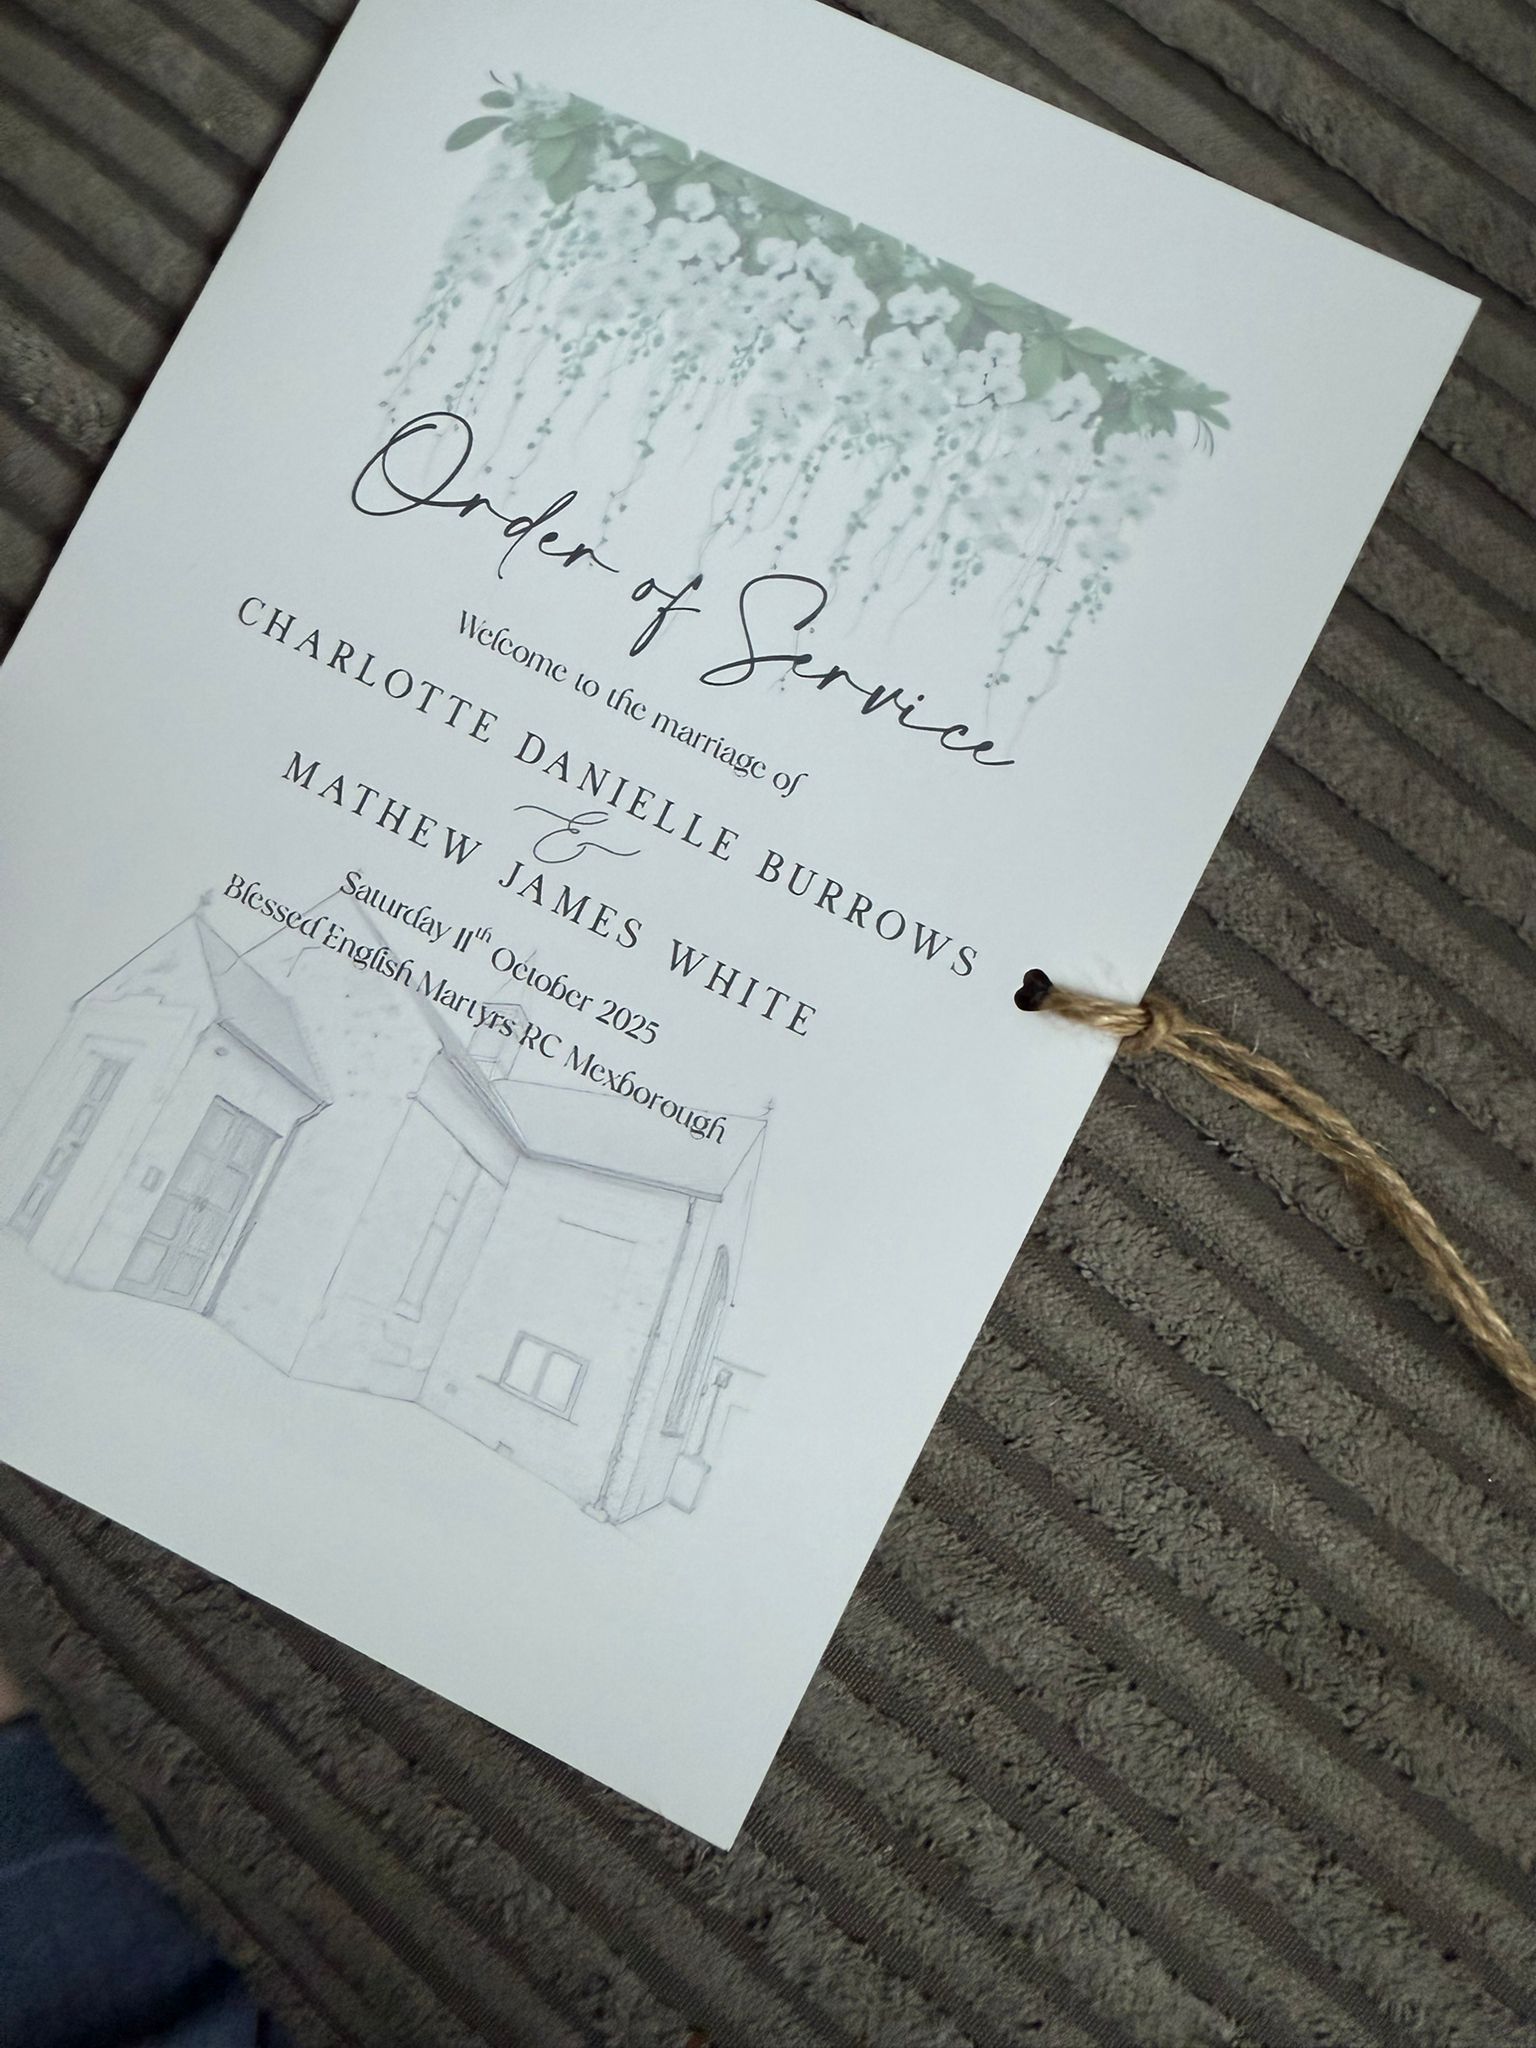 Order of Service
Welcome to the marriage of
CHARLOTTE DANIELLE BURROWS
&
MATHEW JAMES WHITE
Saturday 11th October 2025
Blessed English Martyrs RC Mexborough